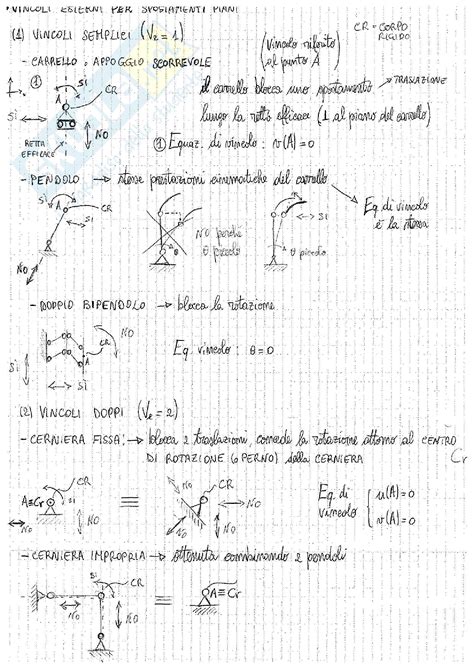 VINCOLI ESTERNI PER SPOSTAMENTI PIANI
(1) VINCOLI SEMPLICI (Ve = 1)
(Vincolo riferito al punto A)
CR = CORPO RIGIDO
- CARRELLO o APPOGGIO SCORREVOLE
① SI A CR
il carrello blocca uno spostamento → TRASLAZIONE
lungo la retta efficace (⊥ al piano del carrello)
SI NO
RETTA EFFICACE
① Equaz. di vincolo: v(A) = 0
- PENDOLO → stesse prestazioni cinematiche del carrello
Eq. di vincolo è la stessa
SI A CR SI NO
NO perché θ piccolo
θ
SI θ piccolo
- DOPPIO BIPENDOLO → blocca la rotazione
SI A CR NO SI
Eq. vincolo: θ = 0
(2) VINCOLI DOPPI (Ve = 2)
- CERNIERA FISSA: → blocca 2 traslazioni, concede la rotazione attorno al CENTRO
DI ROTAZIONE (o PERNO) della CERNIERA Cr
A≡Cr SI CR NO NO
≡
NO CR NO NO NO
Eq. di vincolo { u(A) = 0
v(A) = 0
- CERNIERA IMPROPRIA → ottenuta combinando 2 pendoli
SI CR NO NO
≡
A≡Cr